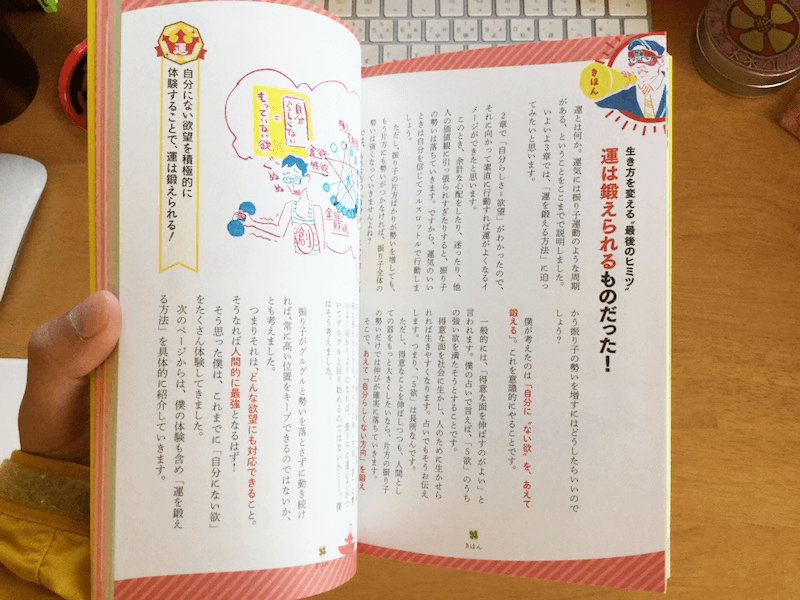 きほん
生き方を変える"最後のヒミツ"
運は鍛えられるものだった！
運とは何か。運気には振り子運動のような周期
がある、ということをここまでで説明しました。
いよいよ3章では、「運を鍛える方法」に迫っ
てみたいと思います。
2章で「自分らしさ＝欲望」がわかったので、
それに向かって素直に行動すれば運がよくなるイ
メージができたと思います。
このとき、余計な心配をしたり、迷ったり、他
人の価値観に引っ張られすぎたりすると、振り子
の勢いは落ちていきます。ですから、運気のいい
ときは自分を信じてフルスロットルで行動しま
しょう。
ただし、振り子の片方ばかりが勢いを増しても、
もう片方にも勢いがつかなければ、振り子全体の
勢いは強くなっていきませんよね？
かう振り子の勢いを増すにはどうしたらいいので
しょう？
僕が考えたのは「自分に"ない欲"を、あえて
鍛える」。これを意識的にやることです。
一般的には、「得意な面を伸ばすのがよい」と
言われます。僕の占いで言えば、「5欲」のうち
の強い欲を満たそうとすることです。
得意な面を社会に生かし、人のために生かせら
れれば生きやすくなります。占いでもそうお伝え
します。つまり、「5欲」は長所なんです。
ただし、得意なことを伸ばしつつも、人間とし
ての器をもっと大きくしたいなら、片方の振り子
の勢いだけでは伸びが確実に落ちていきます。
そこで、あえて「自分らしくない方向」を鍛え
きほん
運
自分にない欲望を積極的に
体験することで、運は鍛えられる！
自分らしくない
＝
もっていない欲
ぐぬぬ
食欲
性欲
金欲
創
はそう考えました。
振り子がグルグルと勢いを落とさずに動き続け
れば、常に高い位置をキープできるのではないか、
とも考えました。
つまりそれは、どんな欲望にも対応できること。
そうなれば人間的に最強となるはず！
そう思った僕は、これまでに「自分にない欲」
をたくさん体験してきました。
次のページからは、僕の体験も含め「運を鍛え
る方法」を具体的に紹介していきます。
きほん